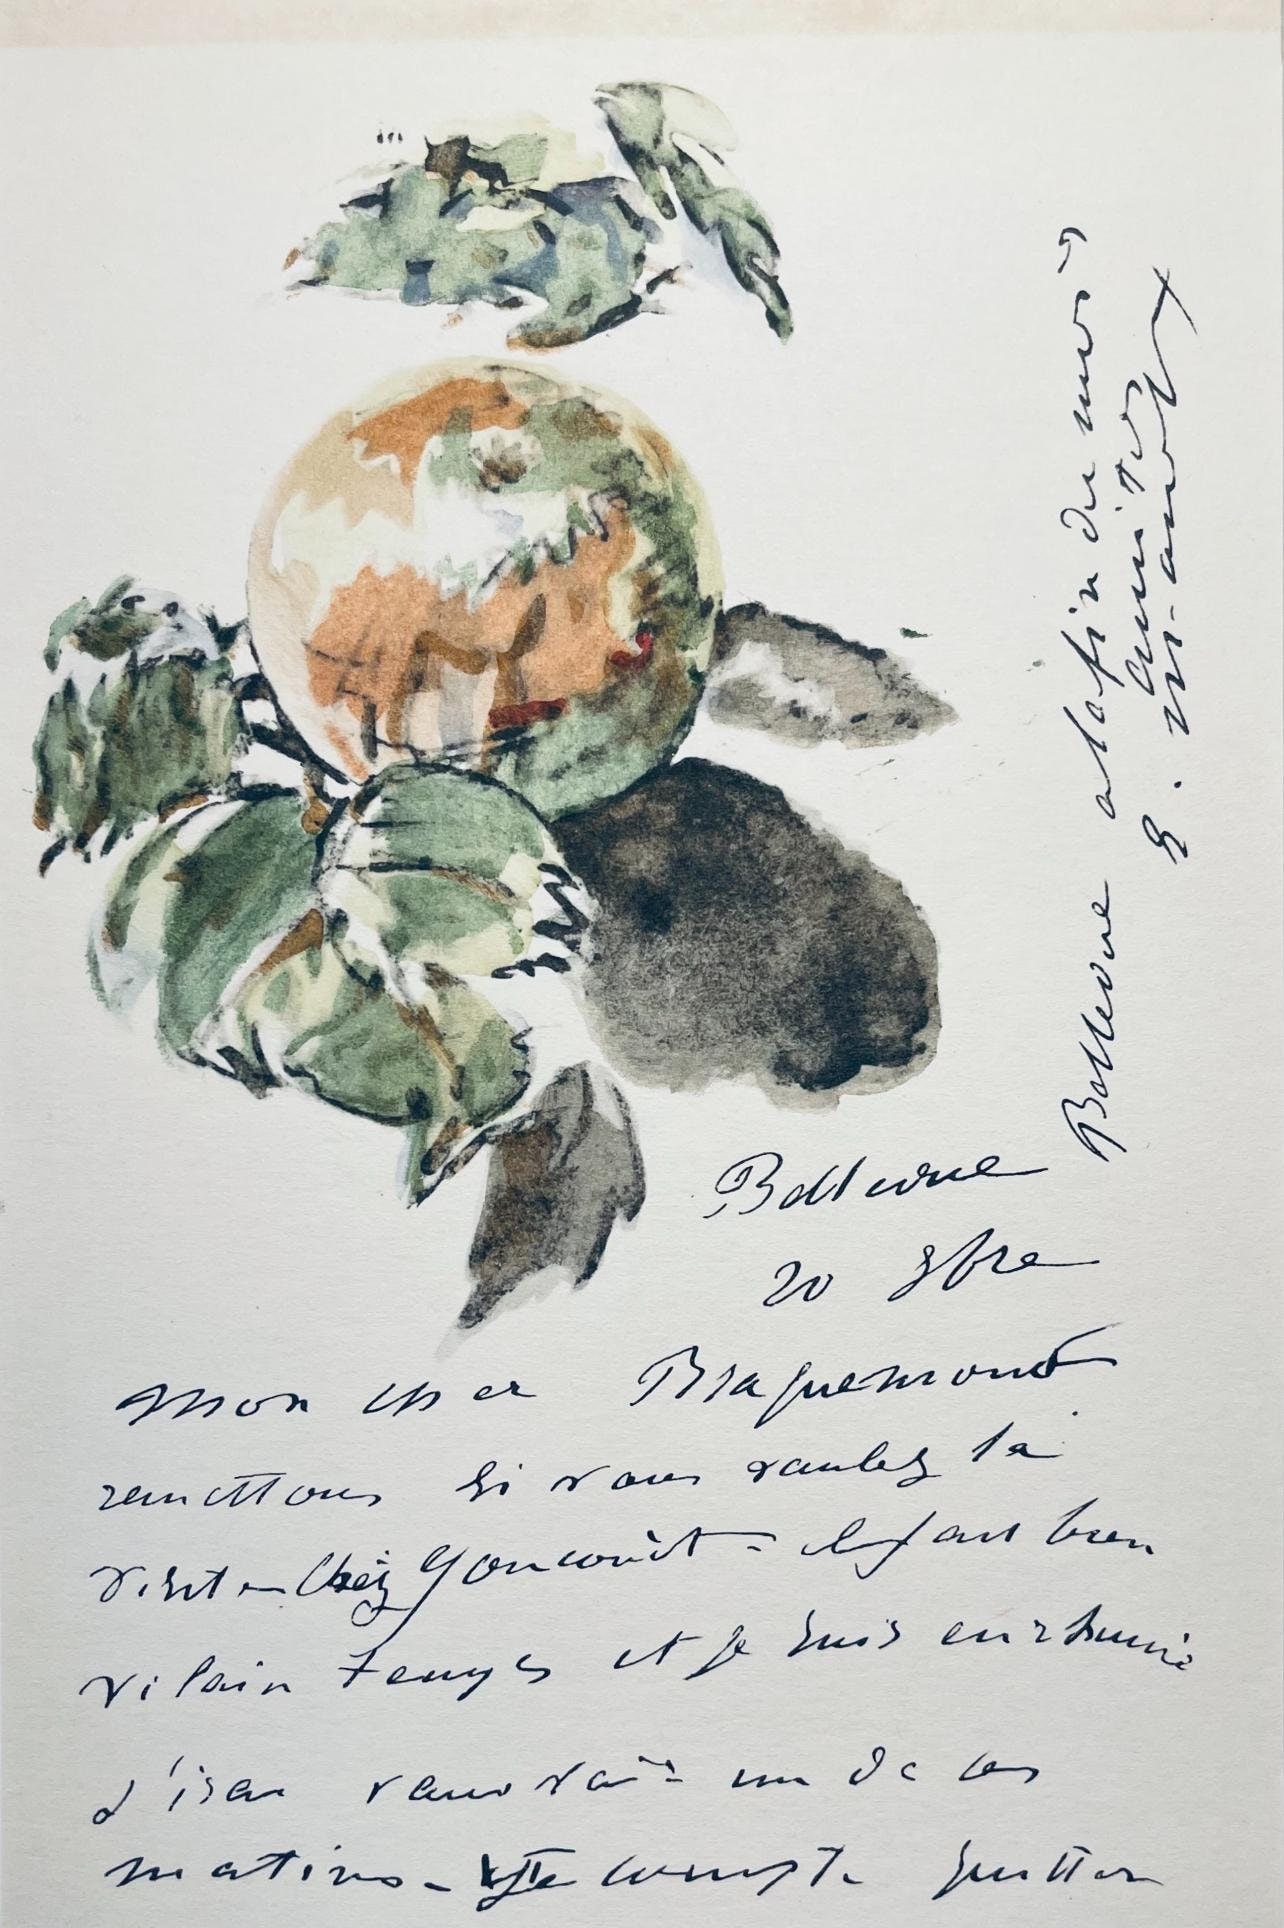 Bellevue
20 9bre
Mon cher Braquemond
remettons si vous voulez la
visite chez Goncourt - il fait bien
vilain temps et je suis enrhumé
j'irai vous voir un de ces
matins - Je compte quitter
Bellevue à la fin du mois
amitiés
E. Manet